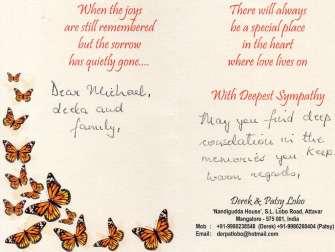 When the joys
are still remembered
but the sorrow
has quietly gone....
Dear Michael,
decka and
family,
There will always
be a special place
in the heart
where love lives on
With Deepest Sympathy
May you find deep
consolation in the
memories you keep
Warm regards,
Derek & Patsy Lobo
'Nandigudda House', S.L. Lobo Road, Attavar
Mangalore - 575 001, India
Mob : +91-9980238548 (Derek) +91-9980260404 (Patsy)
Email: derpatlobo@hotmail.com